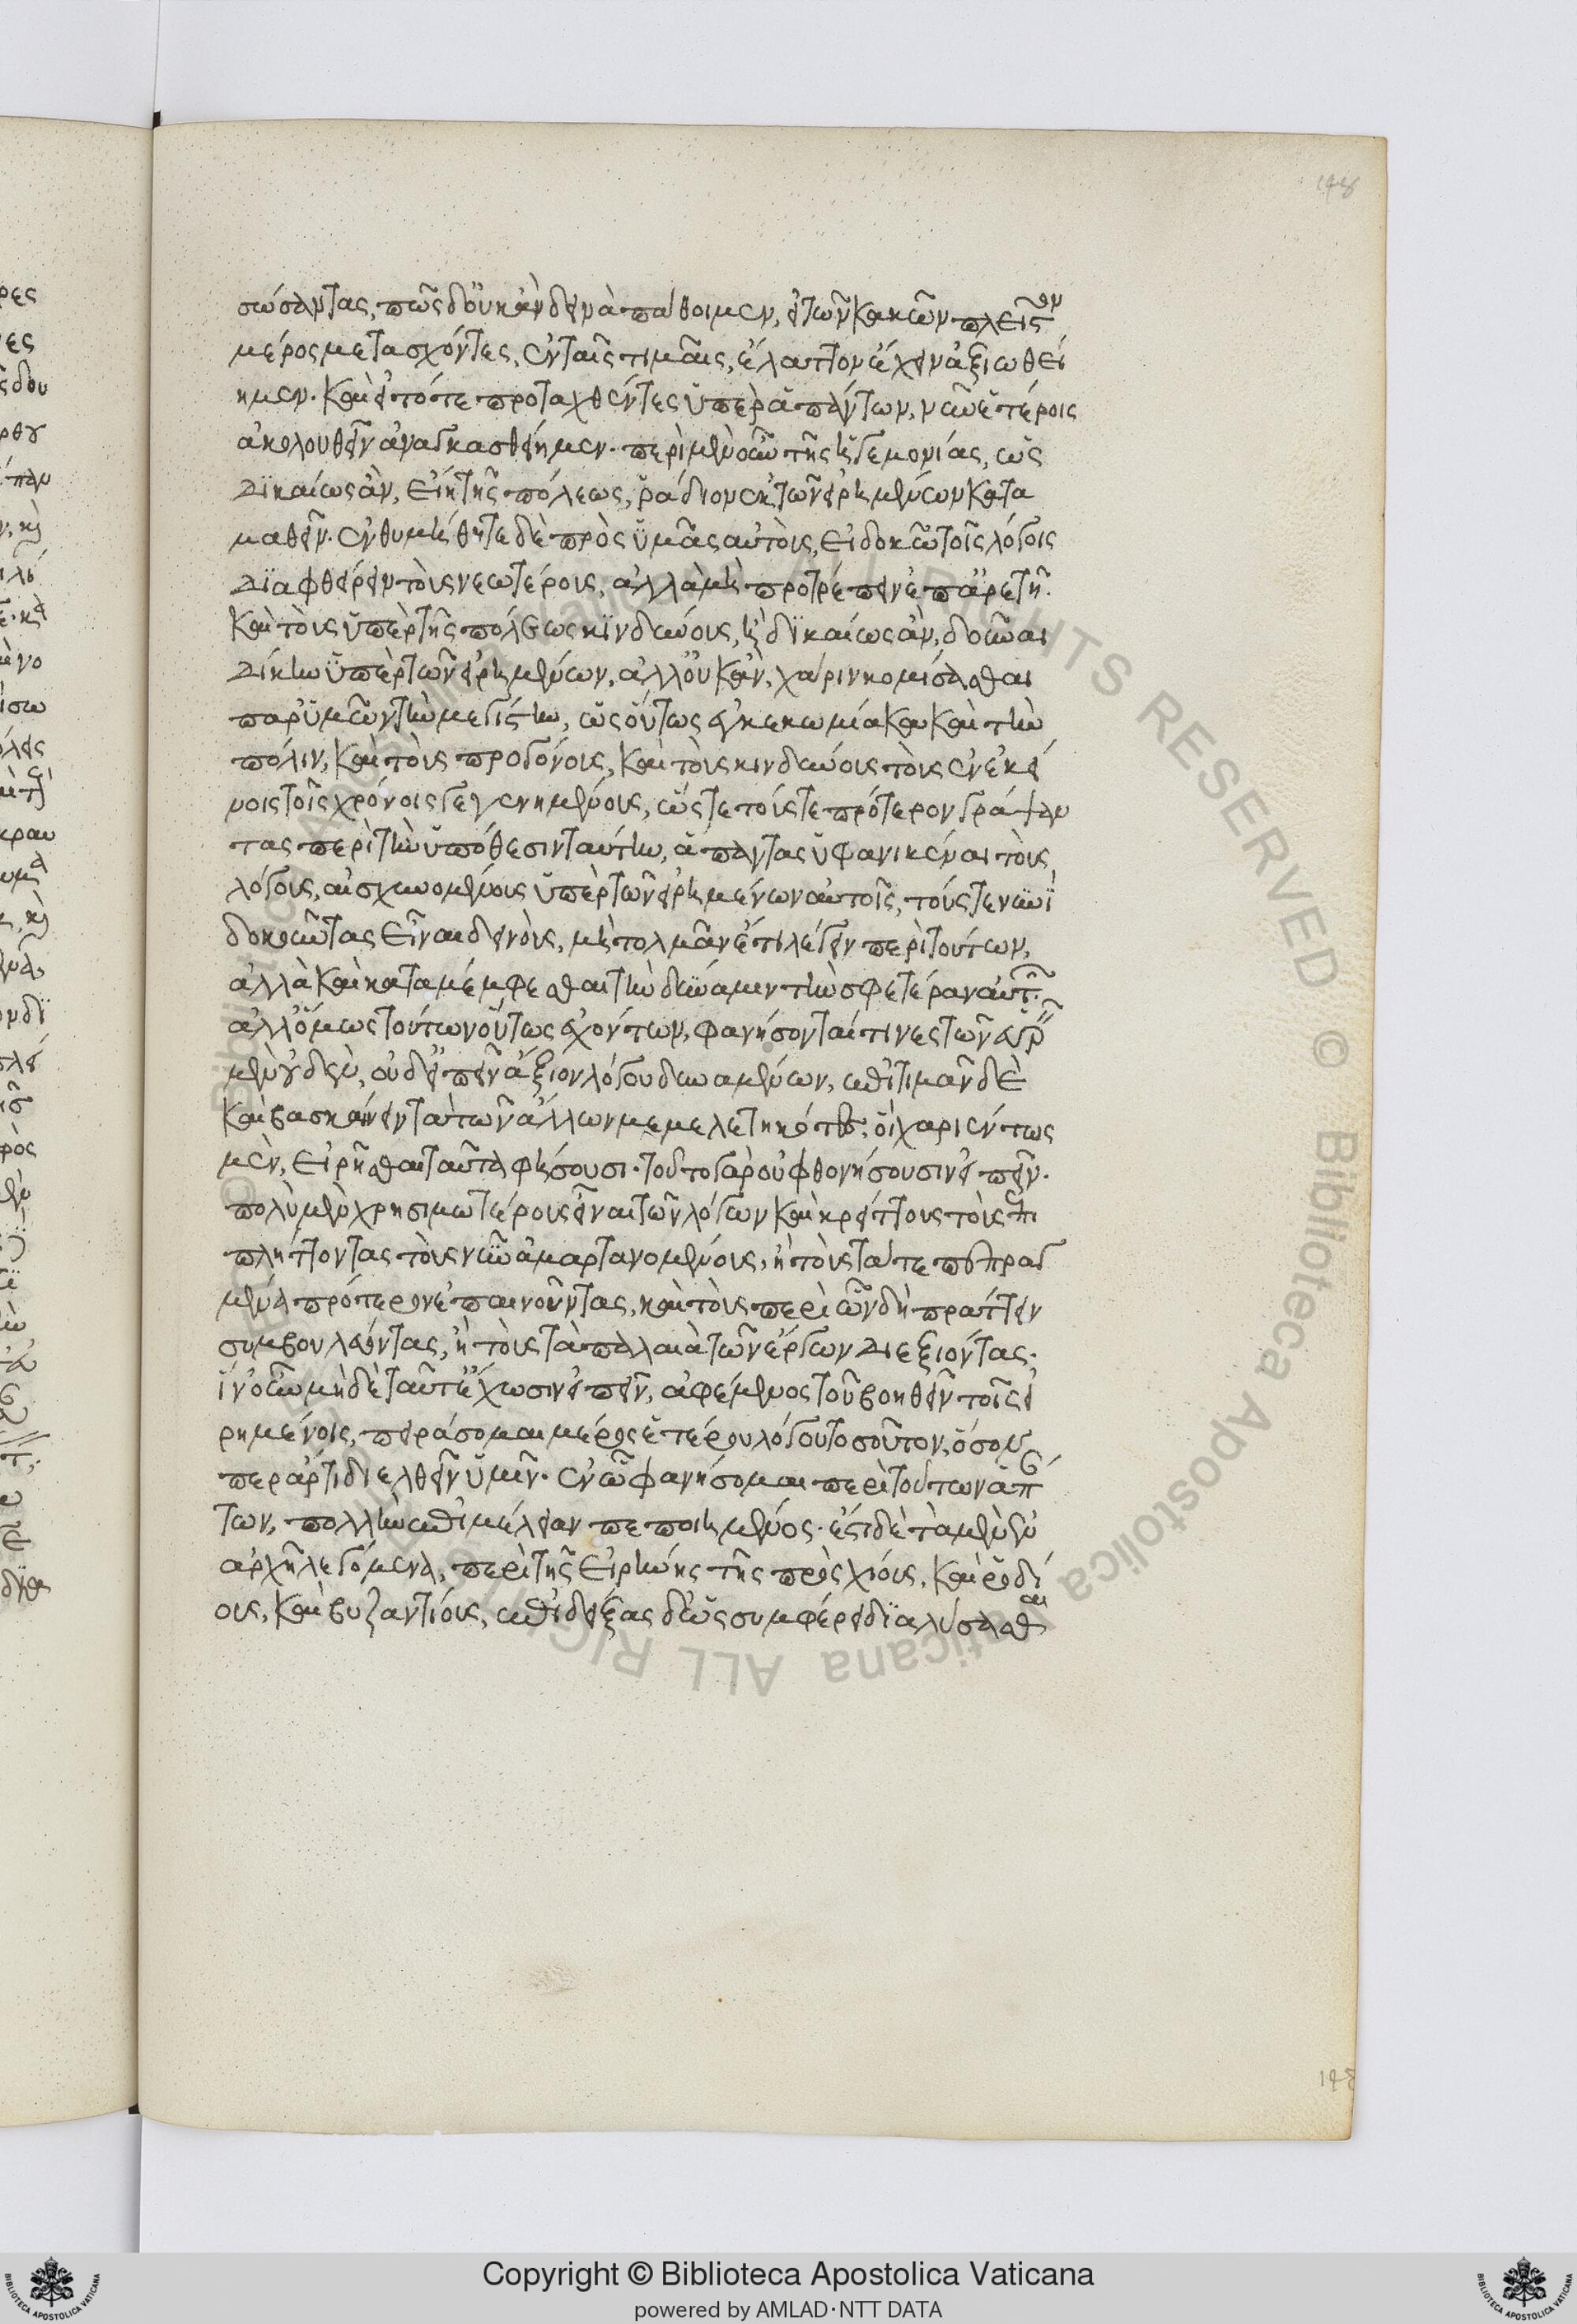 ρες
σώσαντας, πῶς δ' οὐκ ἂν δεινὰ πάθοιμεν, εἰ τῶν κακῶν πλεῖστον
μέρος μετασχόντες, ἐν ταῖς τιμαῖς, ἔλαττον ἔχειν ἀξιωθεί
ημεν. καὶ εἰ τότε προταχθέντες ὑπὲρ ἁπάντων, νῦν ἑτέροις
ἀκολουθεῖν ἀναγκασθείημεν. περὶ μὲν οὖν τῆς ἡγεμονίας, ὡς
δικαίως ἂν, εἴη τῆς πόλεως, ῥᾴδιον ἐκ τῶν εἰρημένων κατα
μαθεῖν. ἐνθυμήθητε δὲ πρὸς ὑμᾶς αὐτοὺς, εἰ δοκῶ τοῖς λόγοις
διαφθείρειν τοὺς νεωτέρους, ἀλλὰ μὴ προτρέπειν ἐπ' ἀρετὴν.
καὶ τοὺς ὑπὲρ τῆς πόλεως κινδύνους, ἢ δικαίως ἂν, δοῦναι
δίκην ὑπὲρ τῶν εἰρημένων, ἀλλ' οὐκ ἂν, χάριν κομίσασθαι
παρ' ὑμῶν τὴν μεγίστην, ὡς οὕτως ἐγκεκωμίακα καὶ τὴν
πόλιν, καὶ τοὺς προγόνους, καὶ τοὺς κινδύνους τοὺς ἐν ἐκεί
νοις τοῖς χρόνοις γεγενημένους, ὥστε τούς τε πρότερον γράψαν
τας περὶ τὴν ὑπόθεσιν ταύτην, ἅπαντας ἠφανικέναι τοὺς
λόγους, αἰσχυνομένους ὑπὲρ τῶν εἰρημένων αὐτοῖς, τούς τε νῦν
δοκοῦντας εἶναι δεινοὺς, μὴ τολμᾶν ἔτι λέγειν περὶ τούτων,
ἀλλὰ καὶ καταμέμφεσθαι τὴν δύναμιν τὴν σφετέραν αὐτῶν.
ἀλλ' ὅμως τούτων οὕτως ἐχόντων, φανήσονταί τινες τῶν εὑρεῖν
μὲν οὐδὲν, οὐδ' εἰπεῖν ἄξιον λόγου δυναμένων, ἐπιτιμᾶν δὲ
καὶ βασκαίνειν τὰ τῶν ἄλλων μεμελετηκότων, οἳ χαριέντως
μὲν, εἰρῆσθαι ταῦτα φήσουσι. τοῦτο γὰρ οὐ φθονήσουσιν εἰπεῖν.
πολὺ μὲν χρησιμωτέρους εἶναι τῶν λόγων καὶ κρείττους τοὺς ἐπι
πλήττοντας τοῖς νῦν ἁμαρτανομένοις, ἢ τοὺς τά τε πεπραγ
μένα πρότερον ἐπαινοῦντας, καὶ τοὺς περὶ ὧν δὴ πράττειν
συμβουλεύοντας, ἢ τοὺς τὰ παλαιὰ τῶν ἔργων διεξιόντας.
ἵν' οὖν μηδὲ ταῦτ' ἔχωσιν εἰπεῖν, ἀφέμενος τοῦ βοηθεῖν τοῖς εἰ
ρημένοις, πειράσομαι μέρος ἑτέρου λόγου τοσοῦτον, ὅσον
περ ἄρτι διελθεῖν ὑμῖν. ἐν ᾧ φανήσομαι περὶ τούτων ἁπάν
των, πολλὴν ἐπιμέλειαν πεποιημένος. ἔστι δὲ τὰ μὲν ἐν
ἀρχῇ λεγόμενα, περὶ τῆς εἰρήνης τῆς πρὸς χίους, καὶ ῥοδί
ους, καὶ βυζαντίους, ἐπιδείξας δ' ὡς συμφέρει διαλύσασθαι
Copyright © Biblioteca Apostolica Vaticana
powered by AMLAD·NTT DATA